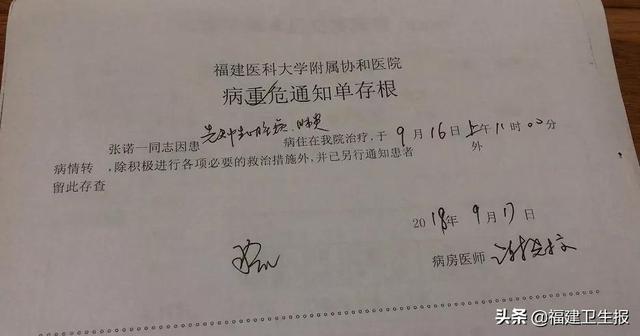 福建医科大学附属协和医院
病重危通知单存根
张诺一同志因患先天性心脏病、肺炎病住在我院治疗，于9月16日上午11时00分
病情转 ，除积极进行各项必要的救治措施外，并已另行通知患者 外
留此存查
2018年9月17日
病房医师
头条 @福建卫生报